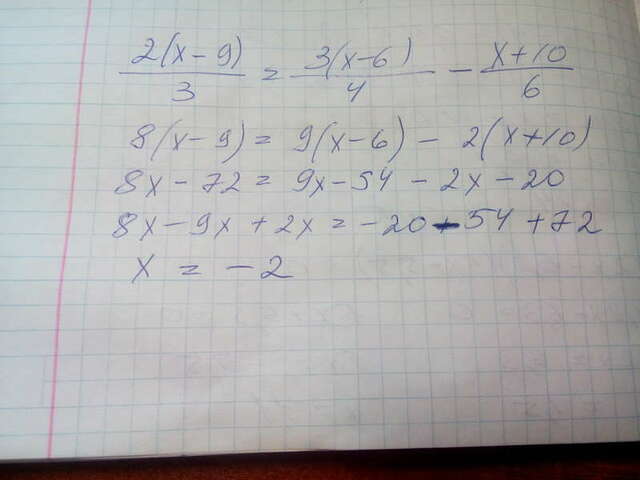 2(x-9)/3 = 3(x-6)/4 - x+10/6
8(x-9) = 9(x-6) - 2(x+10)
8x-72 = 9x-54-2x-20
8x-9x+2x = -20-54+72
x = -2